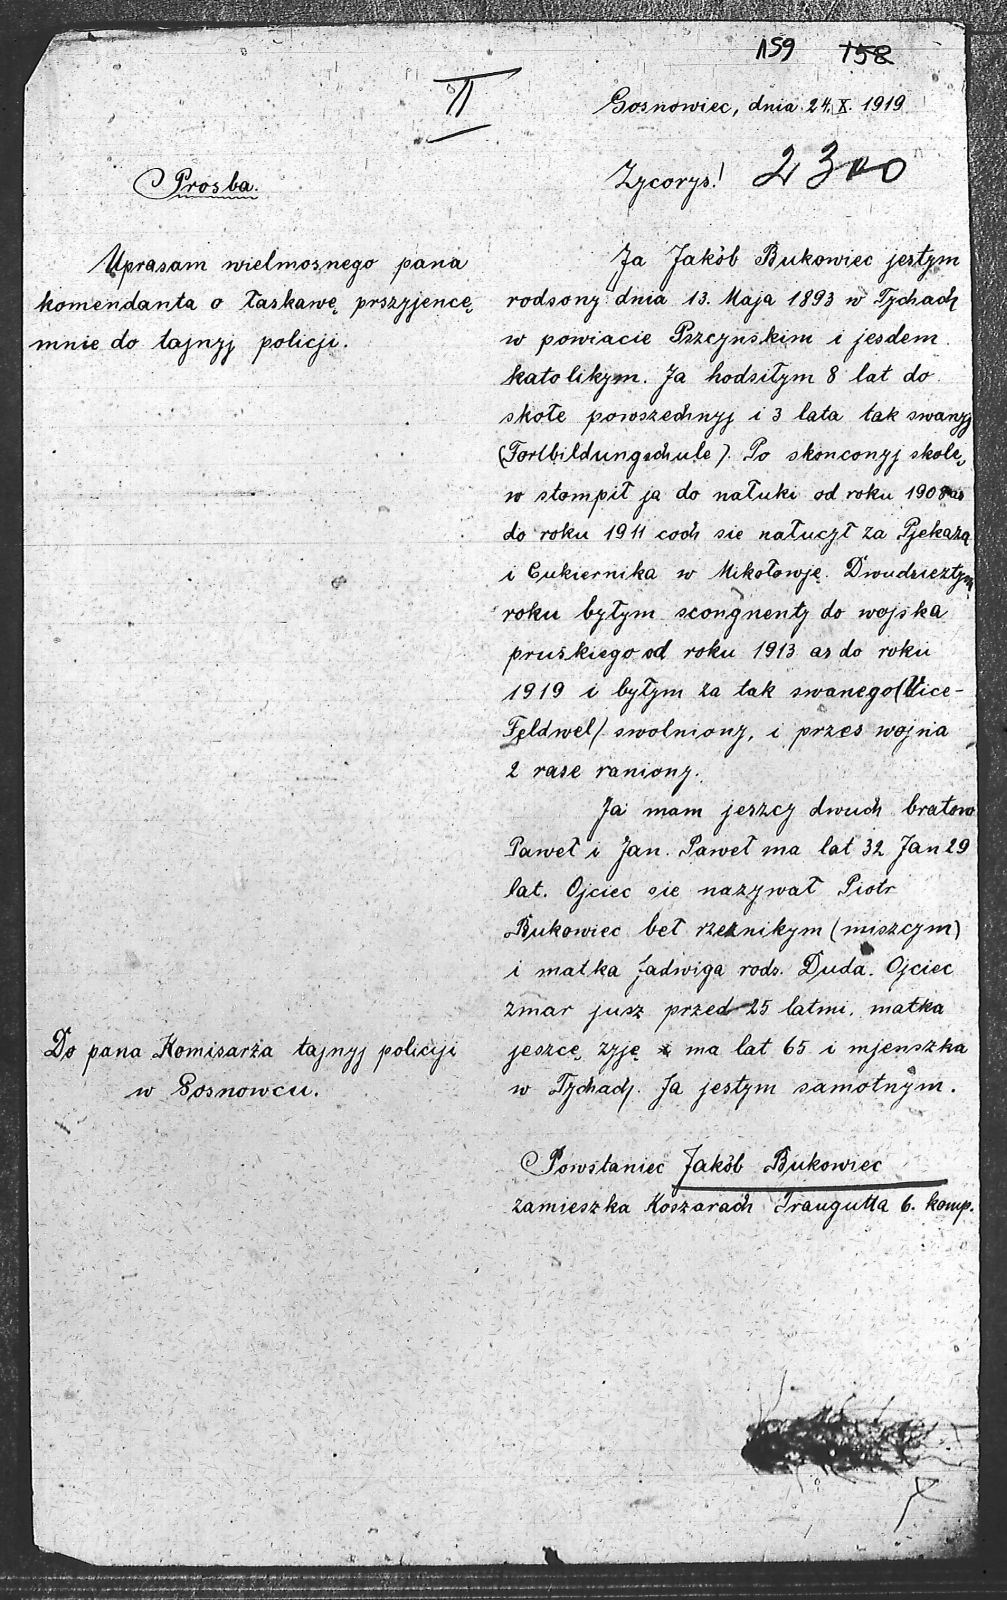 159 158
II
Sosnowiec, dnia 24. X. 1919
Prosba.
Zycorys! 2300
Uprasam wielmosnego pana
komendanta o łaskawę prszyjencę
mnie do tajnyj policji.
Do pana Komisarża tajnyj policiji
w Sosnowcu.
Ja Jakób Bukowiec jestym
rodsony dnia 13. Maja 1893 w Tychach
w powiacie Pszczynskim i jesdem
katolikym. Ja hodsiłym 8 lat do
skołe powszechnyj i 3 lata tak swanyj
(Fortbildungschule). Po skonconyj skole,
w stompił ja do nałuki od roku 1908 as
do roku 1911 coch sie nałuczł za Pjekaża
i Cukiernika w Mikołowję. Dwudsieztym
roku byłym scongnenty do wojska
pruskiego od roku 1913 as do roku
1919 i byłym za tak swanego (Vice-
Feldwel) swolniony, i przes wojna
2 rase raniony.
Ja mam jeszcy dwuch bratow
Paweł i Jan. Paweł ma lat 32 Jan 29
lat. Ojciec sie nazywał Piotr
Bukowiec beł rzeznikym (miszcym)
i matka Jadwiga rods. Duda. Ojciec
zmar jusz przed 25 latmi, matka
jeszcę zyję i ma lat 65 i mjenszka
w Tychach. Ja jestym samotnym.
Powstaniec Jakób Bukowiec
zamieszka Koszarach Traugutta 6. komp.